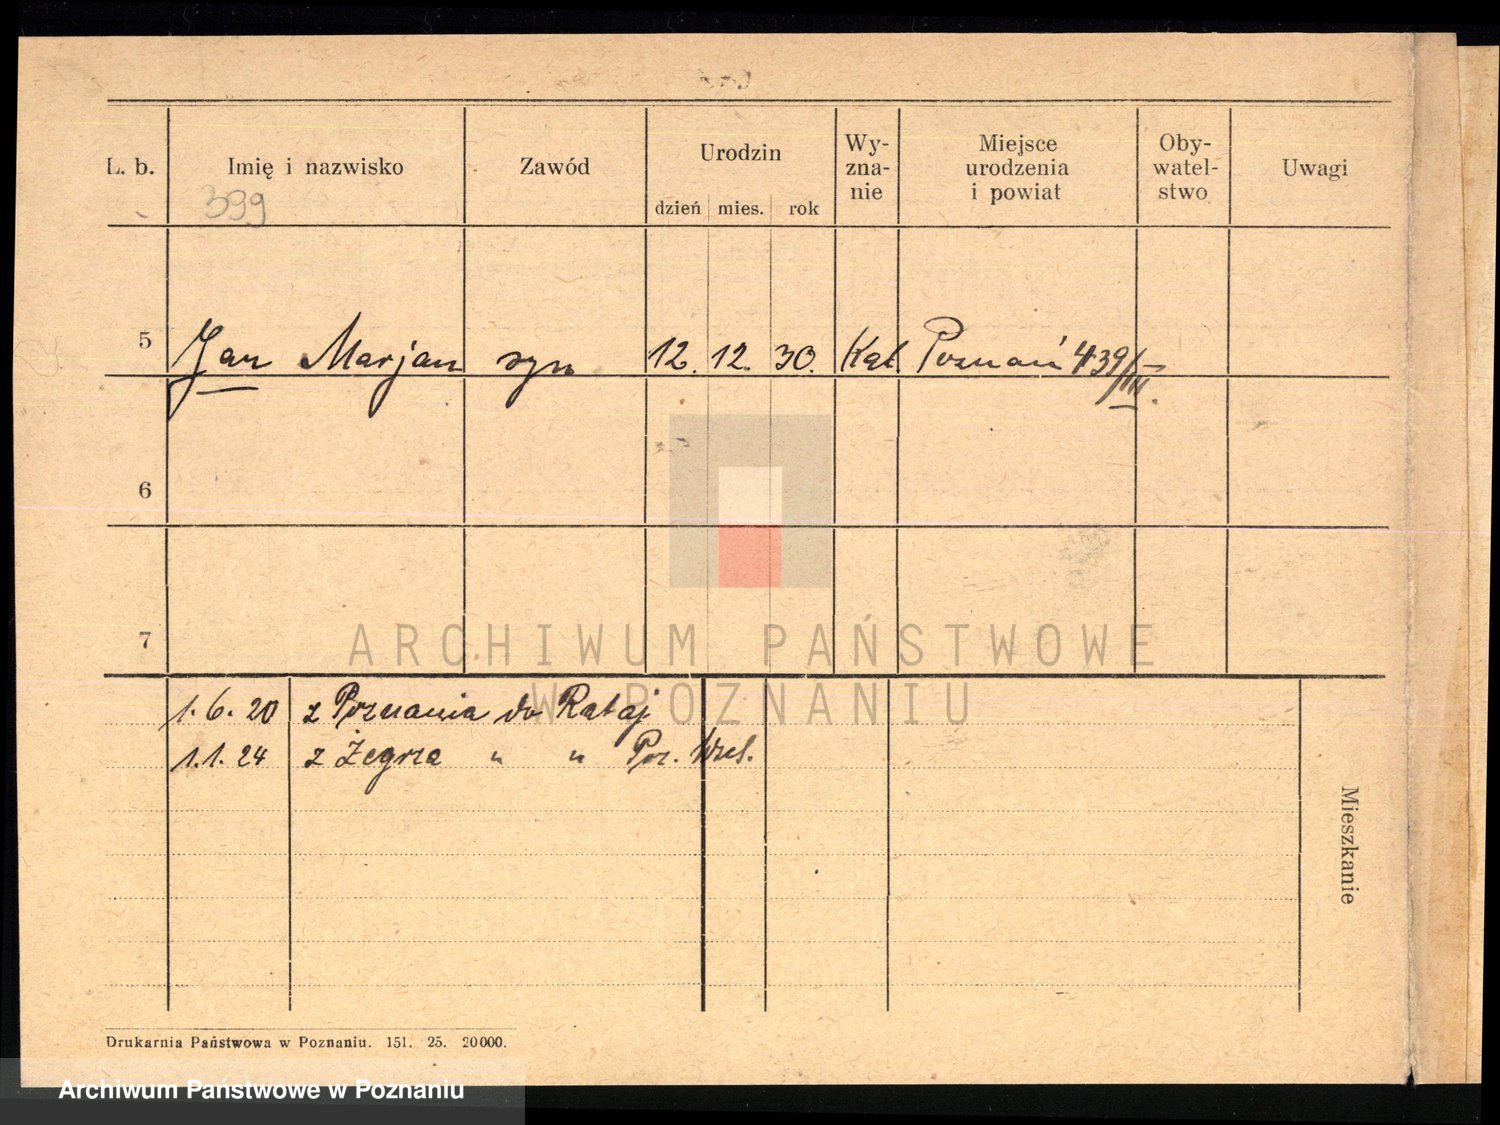 L. b. Imię i nazwisko Zawód Urodzin dzień mies. rok Wy-
zna-
nie Miejsce
urodzenia
i powiat Oby-
watel-
stwo Uwagi
399
5 Jan Marjan syn 12. 12. 30. Kat. Poznań 439/III.
6
7
ARCHIWUM PAŃSTWOWE
W POZNANIU
1.6.20 z Poznania do Rataj
1.1.24 z Żegrza " "
Mieszkanie
Drukarnia Państwowa w Poznaniu. 151. 25. 20000.
Archiwum Państwowe w Poznaniu